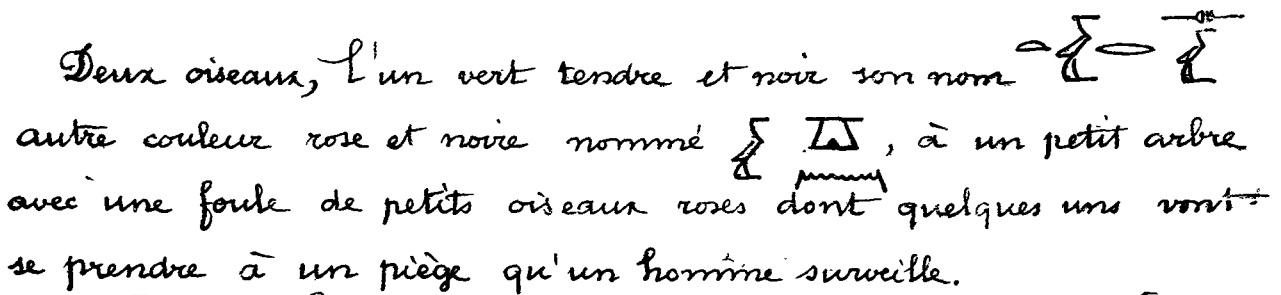 Deux oiseaux, l'un vert tendre et noir son nom
autre couleur rose et noire nommé , à un petit arbre
avec une foule de petits oiseaux roses dont quelques uns vont
se prendre à un piège qu'un homme surveille.